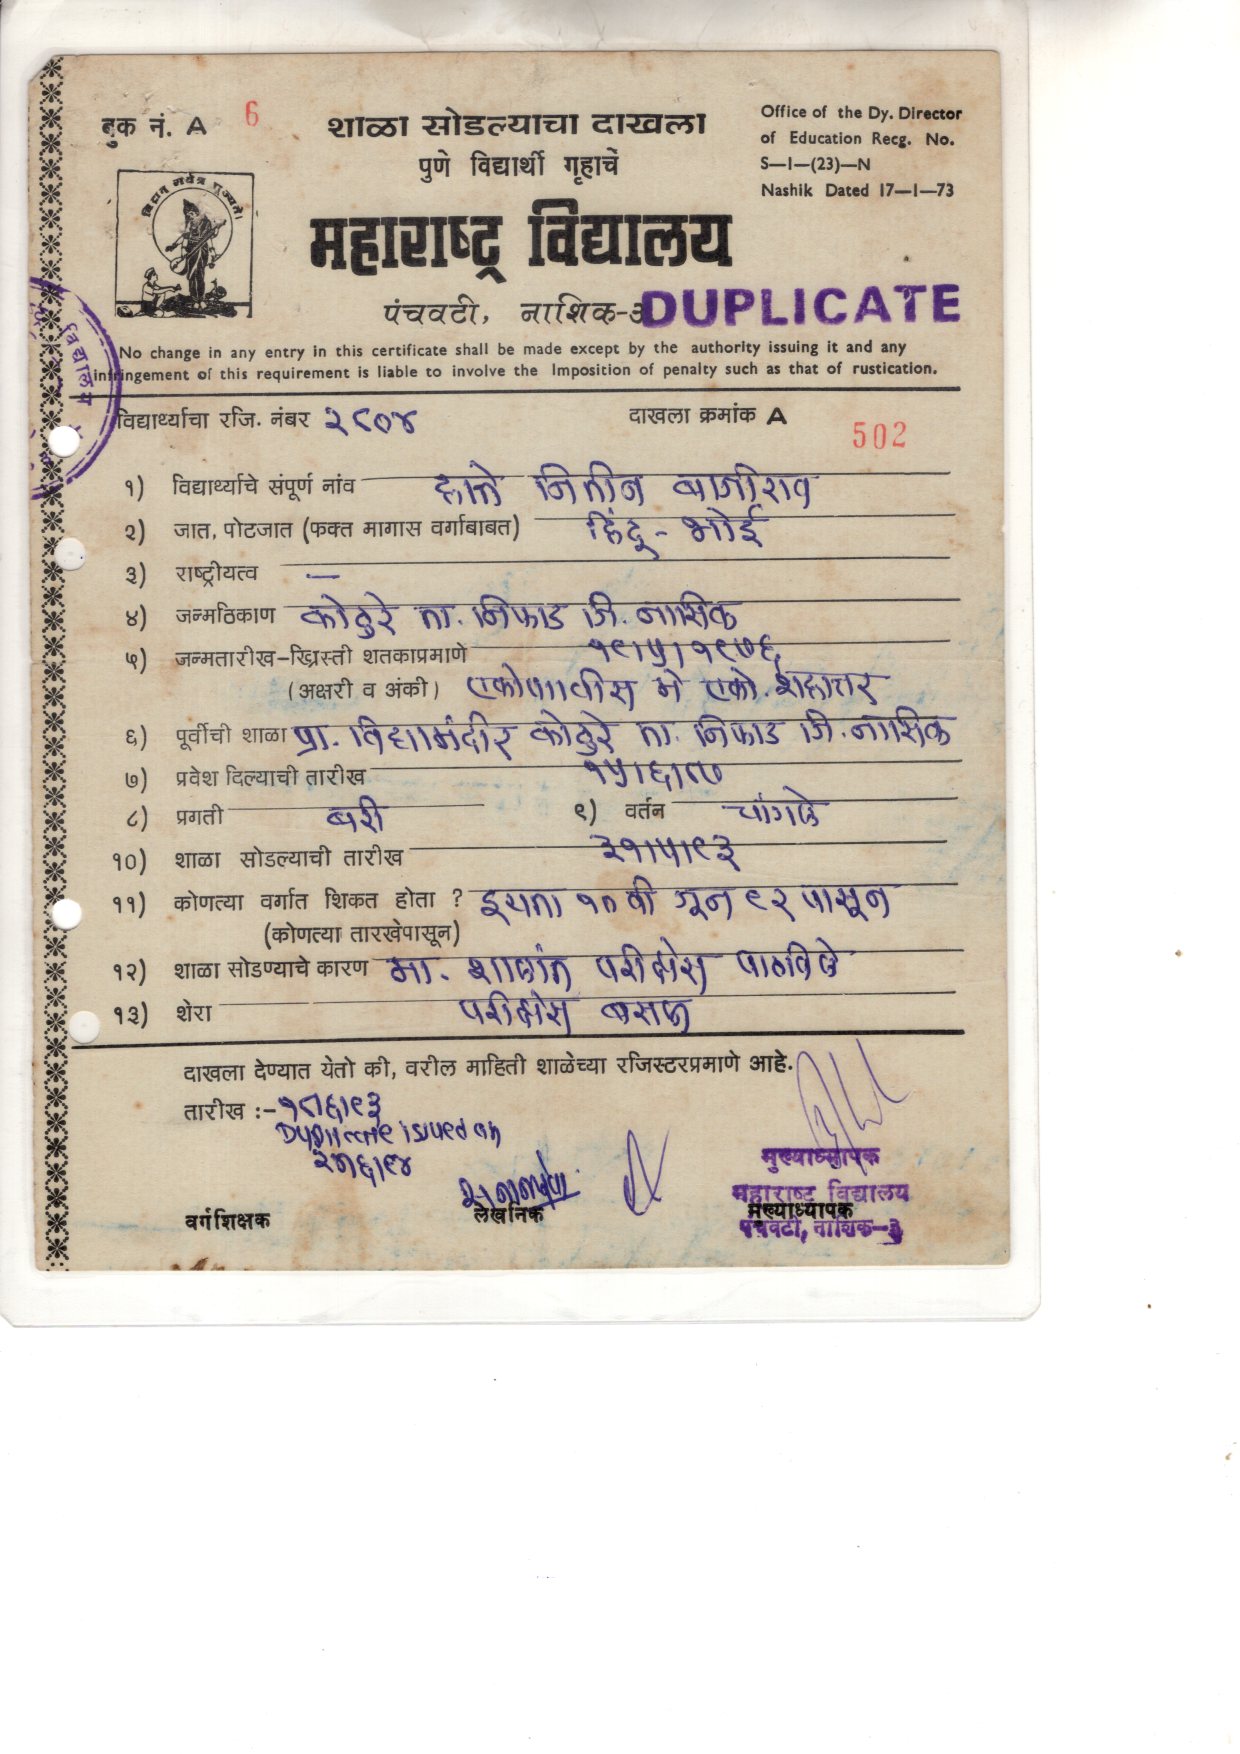 बुक नं. A 6
शाळा सोडल्याचा दाखला
पुणे विद्यार्थी गृहाचें
महाराष्ट्र विद्यालय
पंचवटी, नाशिक-३
DUPLICATE
Office of the Dy. Director
of Education Recg. No.
S—1—(23)—N
Nashik Dated 17—1—73
No change in any entry in this certificate shall be made except by the authority issuing it and any
infringement of this requirement is liable to involve the Imposition of penalty such as that of rustication.
विद्यालय
विद्यार्थ्याचा रजि. नंबर २९०४ दाखला क्रमांक A 502
१) विद्यार्थ्याचे संपूर्ण नांव नितीन बाजीराव
२) जात, पोटजात (फक्त मागास वर्गाबाबत) हिंदू - भोई
३) राष्ट्रीयत्व —
४) जन्मठिकाण कोठुरे ता. निफाड जि. नासिक
५) जन्मतारीख-ख्रिस्ती शतकाप्रमाणे १९।५।१९७६
(अक्षरी व अंकी) एकोणावीस मे एको. शहात्तर
६) पूर्वीची शाळा प्रा. विद्यामंदीर कोठुरे ता. निफाड जि. नासिक
७) प्रवेश दिल्याची तारीख १५।६।८७
८) प्रगती बरी ९) वर्तन चांगले
१०) शाळा सोडल्याची तारीख ३१।५।९३
११) कोणत्या वर्गात शिकत होता ? इयत्ता १० वी जून ९२ पासून
(कोणत्या तारखेपासून)
१२) शाळा सोडण्याचे कारण मा. शालांत परीक्षेस पाठविले
१३) शेरा परीक्षेस बसला
दाखला देण्यात येतो की, वरील माहिती शाळेच्या रजिस्टरप्रमाणे आहे.
तारीख :- १८।६।९३
Duplicate issued on
मुख्याध्यापक
महाराष्ट्र विद्यालय
पंचवटी, नाशिक-३
वर्गशिक्षक लेखनिक मुख्याध्यापक